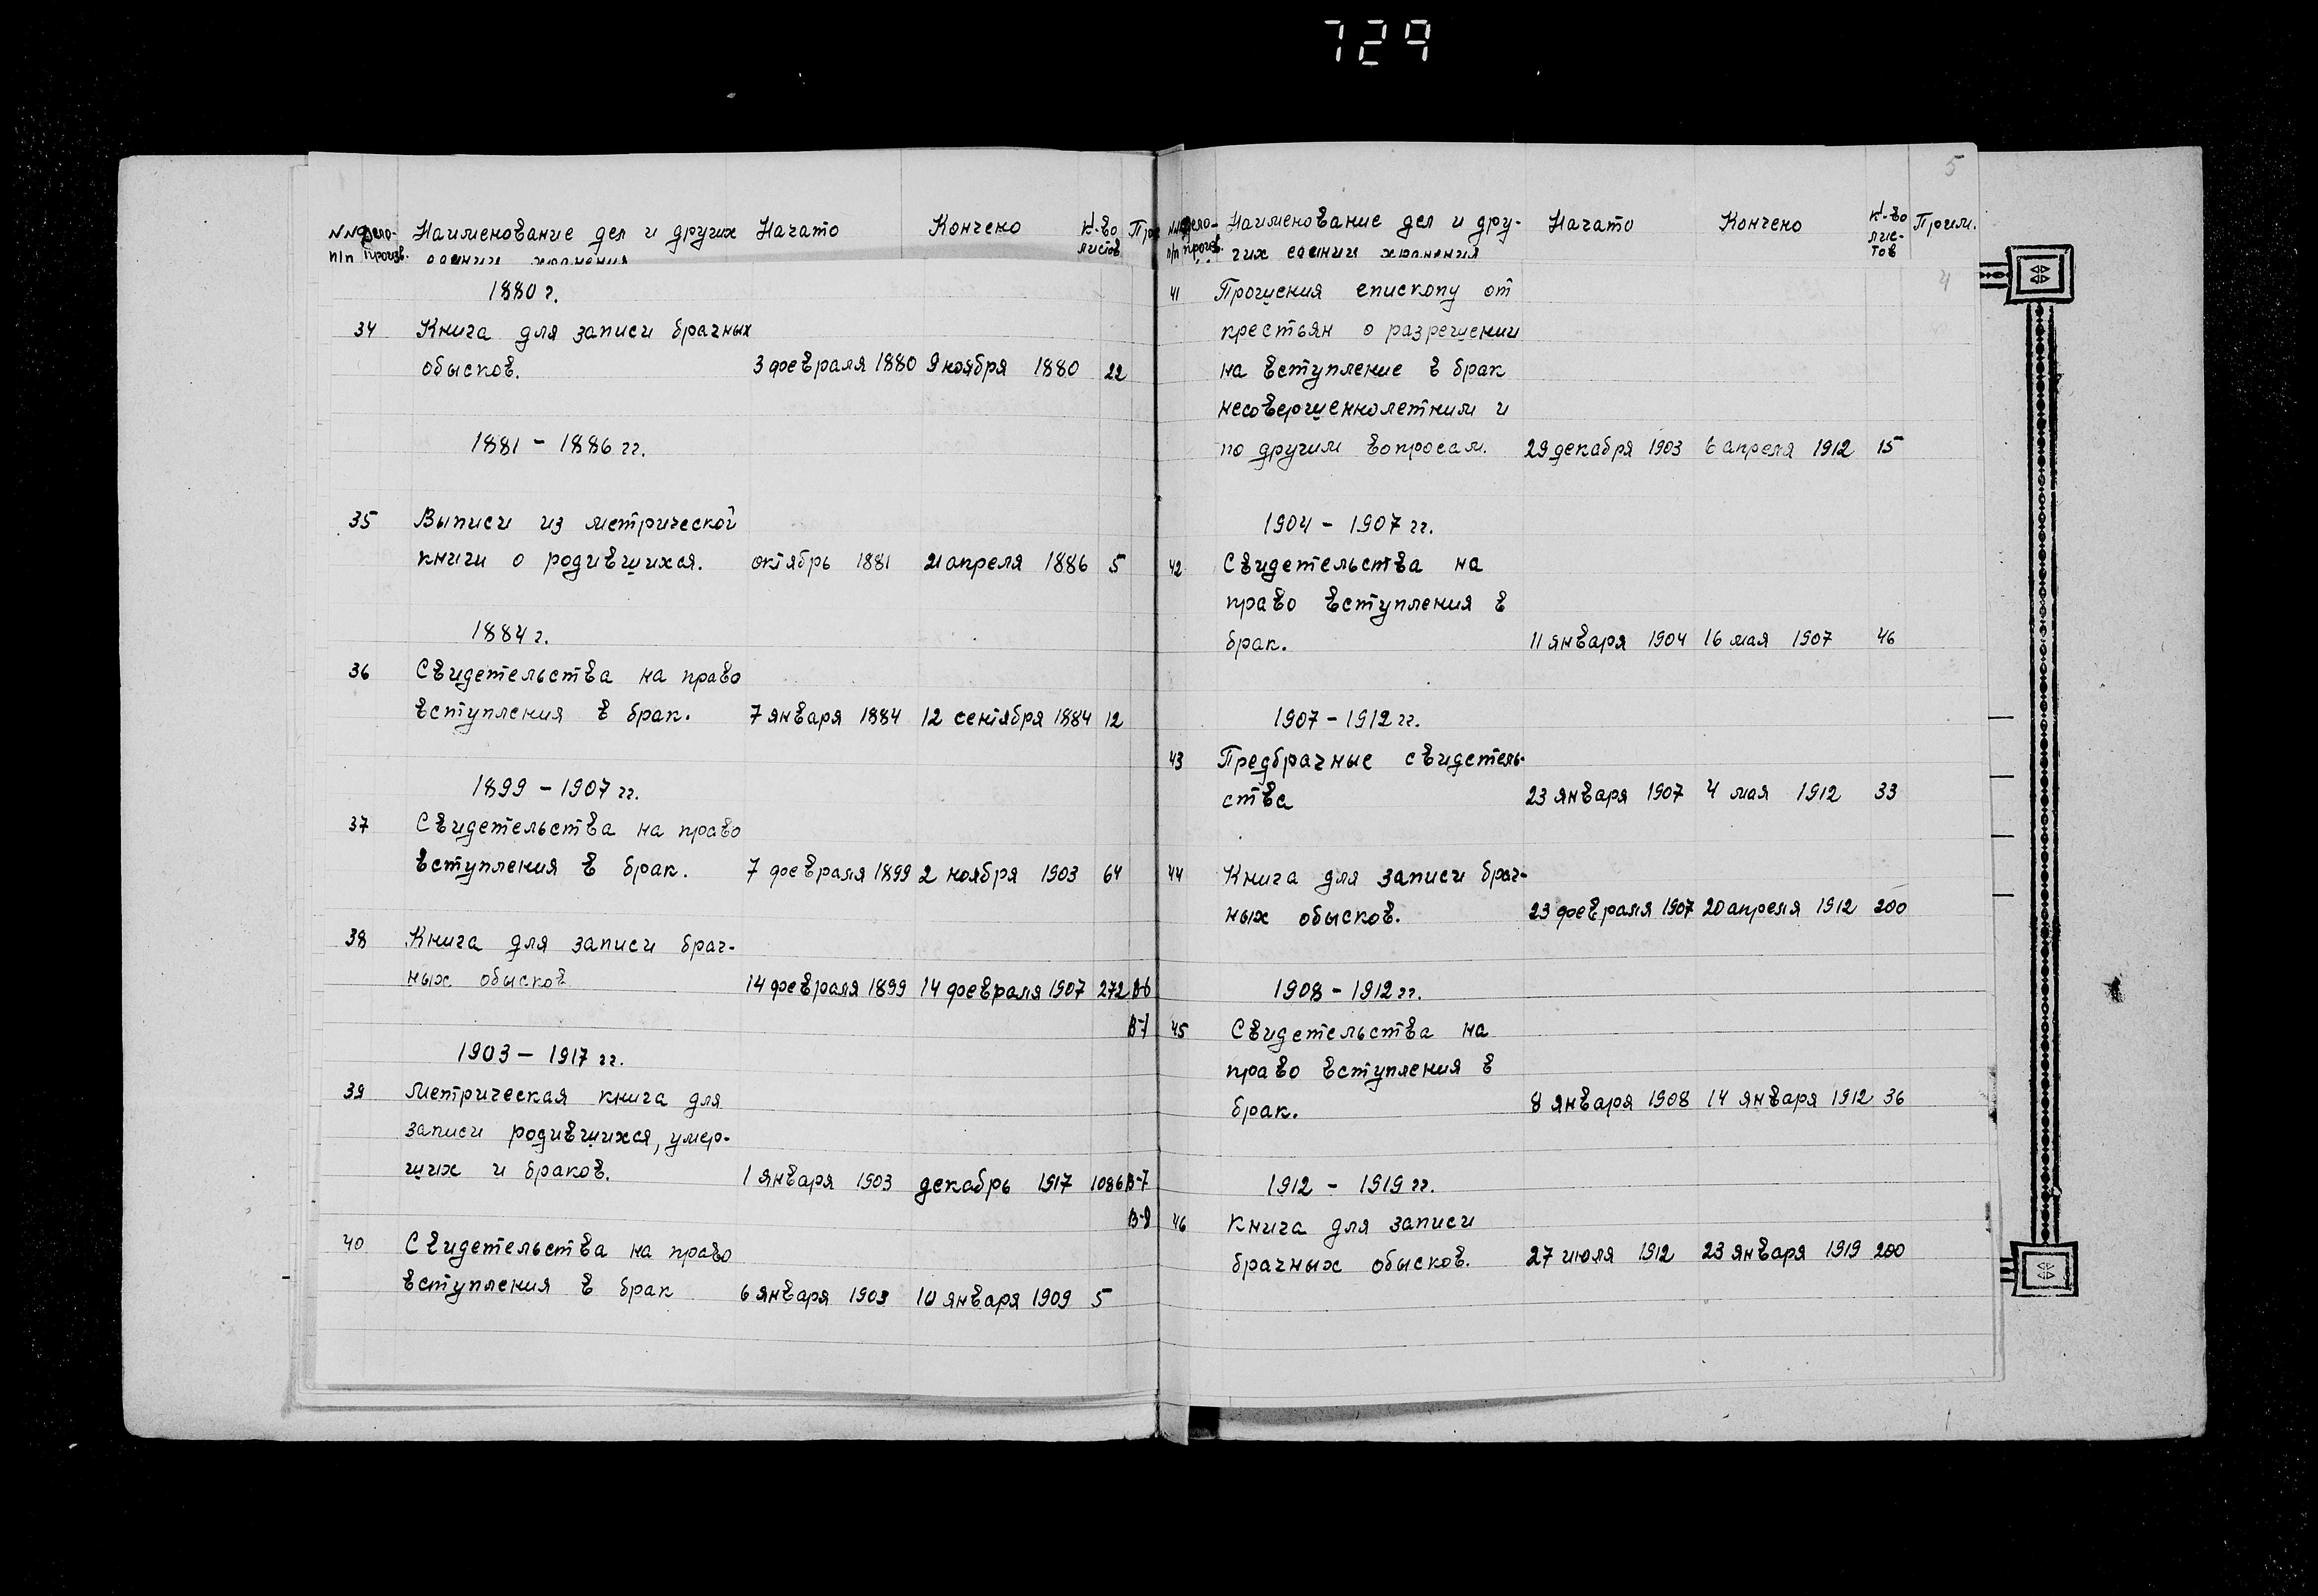 729
NN дело- Наименование дел и других Начато Кончено К-во
п/п произв. единиц хранения листов
1880 г.
34 Книга для записи брачных
обысков. 3 февраля 1880 9 ноября 1880 22
1881 - 1886 гг.
35 Выписи из метрической
книги о родившихся. октябрь 1881 21 апреля 1886 5
1884 г.
36 Свидетельства на право
вступления в брак. 7 января 1884 12 сентября 1884 12
1899 - 1907 гг.
37 Свидетельства на право
вступления в брак. 7 февраля 1899 2 ноября 1903 64
38 Книга для записи брач-
ных обысков 14 февраля 1899 14 февраля 1907 272 В-6
В-7
1903 - 1917 гг.
39 Метрическая книга для
записи родившихся, умер-
ших и браков. 1 января 1903 декабрь 1917 1086 В-7
В-8
40 Свидетельства на право
вступления в брак 6 января 1903 10 января 1909 5
5
NN дело- Наименование дел и дру- Начато Кончено К-во Прим.
п/п произв. гих единиц хранения лис-
тов
4
41 Прошения епископу от
крестьян о разрешении
на вступление в брак
несовершеннолетним и
по другим вопросам. 29 декабря 1903 6 апреля 1912 15
1904 - 1907 гг.
42 Свидетельства на
право вступления в
брак. 11 января 1904 16 мая 1907 46
1907 - 1912 гг.
43 Предбрачные свидетель-
ства 23 января 1907 4 мая 1912 33
44 Книга для записи брач-
ных обысков. 23 февраля 1907 20 апреля 1912 200
1908 - 1912 гг.
45 Свидетельства на
право вступления в
брак. 8 января 1908 14 января 1912 36
1912 - 1919 гг.
46 Книга для записи
брачных обысков. 27 июля 1912 23 января 1919 200